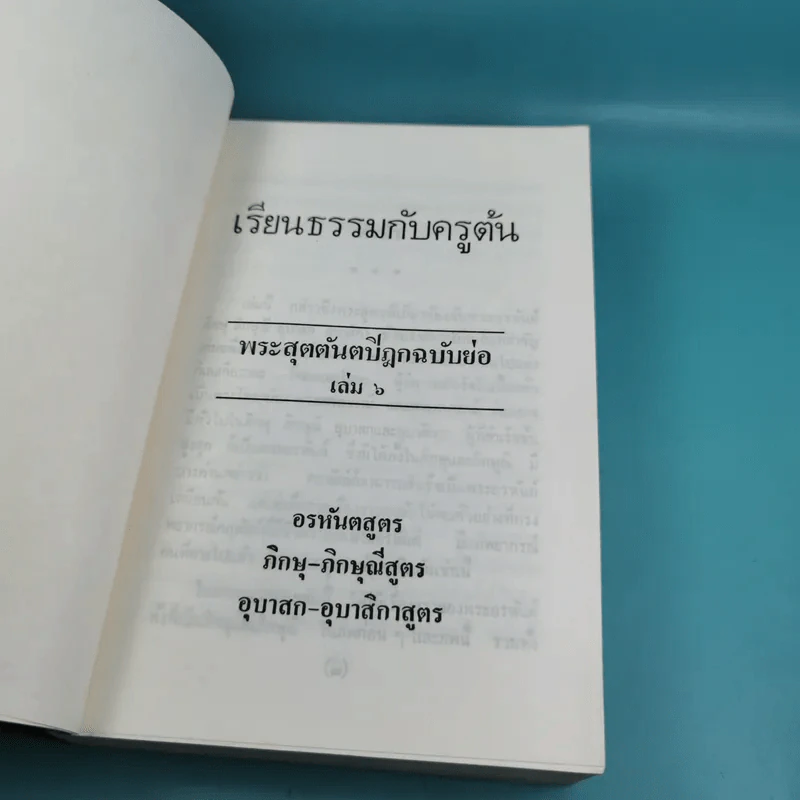 เรียนธรรมกับครูต้น
พระสุตตันตปิฎกฉบับย่อ
เล่ม ๖
อรหันตสูตร
ภิกษุ-ภิกษุณีสูตร
อุบาสก-อุบาสิกาสูตร